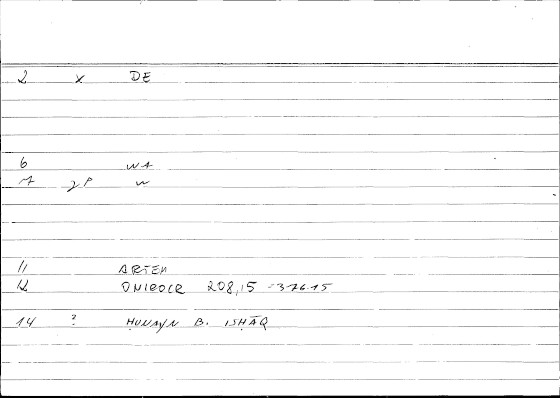 2 x DE
6 WA
7 gP w
11 ARTEM
12 ONIROCR 208,15 - 376.15
14 ? ḤUNAYN B. ISḤĀQ